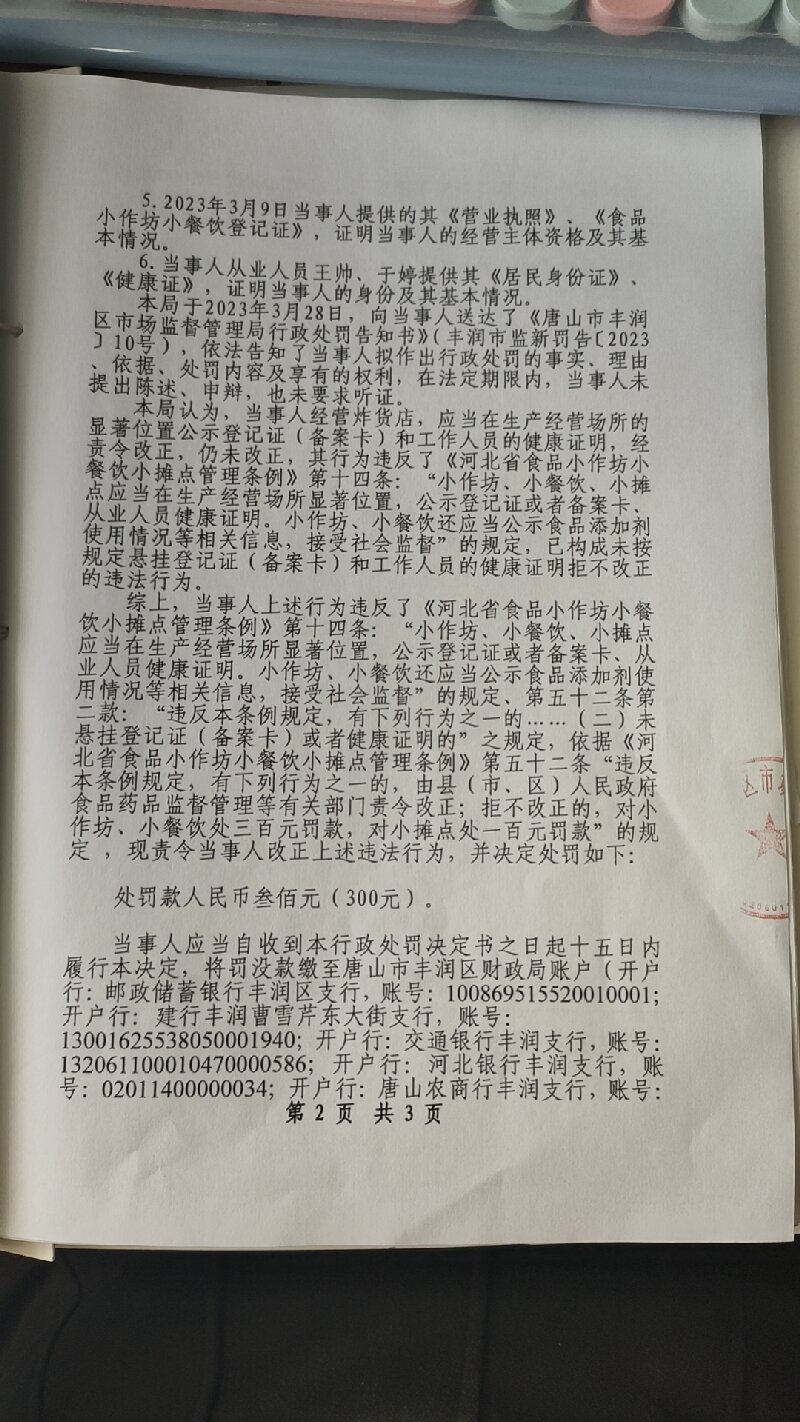 5. 2023年3月9日当事人提供的其《营业执照》、《食品
小作坊小餐饮登记证》，证明当事人的经营主体资格及其基
本情况。
6. 当事人从业人员王帅、于婷提供其《居民身份证》、
《健康证》，证明当事人的身份及其基本情况。
本局于2023年3月28日，向当事人送达了《唐山市丰润
区市场监督管理局行政处罚告知书》（丰润市监新罚告〔2023
〕10号），依法告知了当事人拟作出行政处罚的事实、理由
、依据、处罚内容及享有的权利，在法定期限内，当事人未
提出陈述、申辩，也未要求听证。
本局认为，当事人经营炸货店，应当在生产经营场所的
显著位置公示登记证（备案卡）和工作人员的健康证明，经
责令改正，仍未改正，其行为违反了《河北省食品小作坊小
餐饮小摊点管理条例》第十四条：“小作坊、小餐饮、小摊
点应当在生产经营场所显著位置，公示登记证或者备案卡、
从业人员健康证明。小作坊、小餐饮还应当公示食品添加剂
使用情况等相关信息，接受社会监督”的规定，已构成未按
规定悬挂登记证（备案卡）和工作人员的健康证明拒不改正
的违法行为。
综上，当事人上述行为违反了《河北省食品小作坊小餐
饮小摊点管理条例》第十四条：“小作坊、小餐饮、小摊点
应当在生产经营场所显著位置，公示登记证或者备案卡、从
业人员健康证明。小作坊、小餐饮还应当公示食品添加剂使
用情况等相关信息，接受社会监督”的规定、第五十二条第
二款：“违反本条例规定，有下列行为之一的……（二）未
悬挂登记证（备案卡）或者健康证明的”之规定，依据《河
北省食品小作坊小餐饮小摊点管理条例》第五十二条“违反
本条例规定，有下列行为之一的，由县（市、区）人民政府
食品药品监督管理等有关部门责令改正；拒不改正的，对小
作坊、小餐饮处三百元罚款，对小摊点处一百元罚款”的规
定，现责令当事人改正上述违法行为，并决定处罚如下：
处罚款人民币叁佰元（300元）。
当事人应当自收到本行政处罚决定书之日起十五日内
履行本决定，将罚没款缴至唐山市丰润区财政局账户（开户
行：邮政储蓄银行丰润区支行，账号：100869515520010001；
开户行：建行丰润曹雪芹东大街支行，账号：
13001625538050001940；开户行：交通银行丰润支行，账号：
132061100010470000586；开户行：河北银行丰润支行，账
号：02011400000034；开户行：唐山农商行丰润支行，账号：
第 2 页 共 3 页